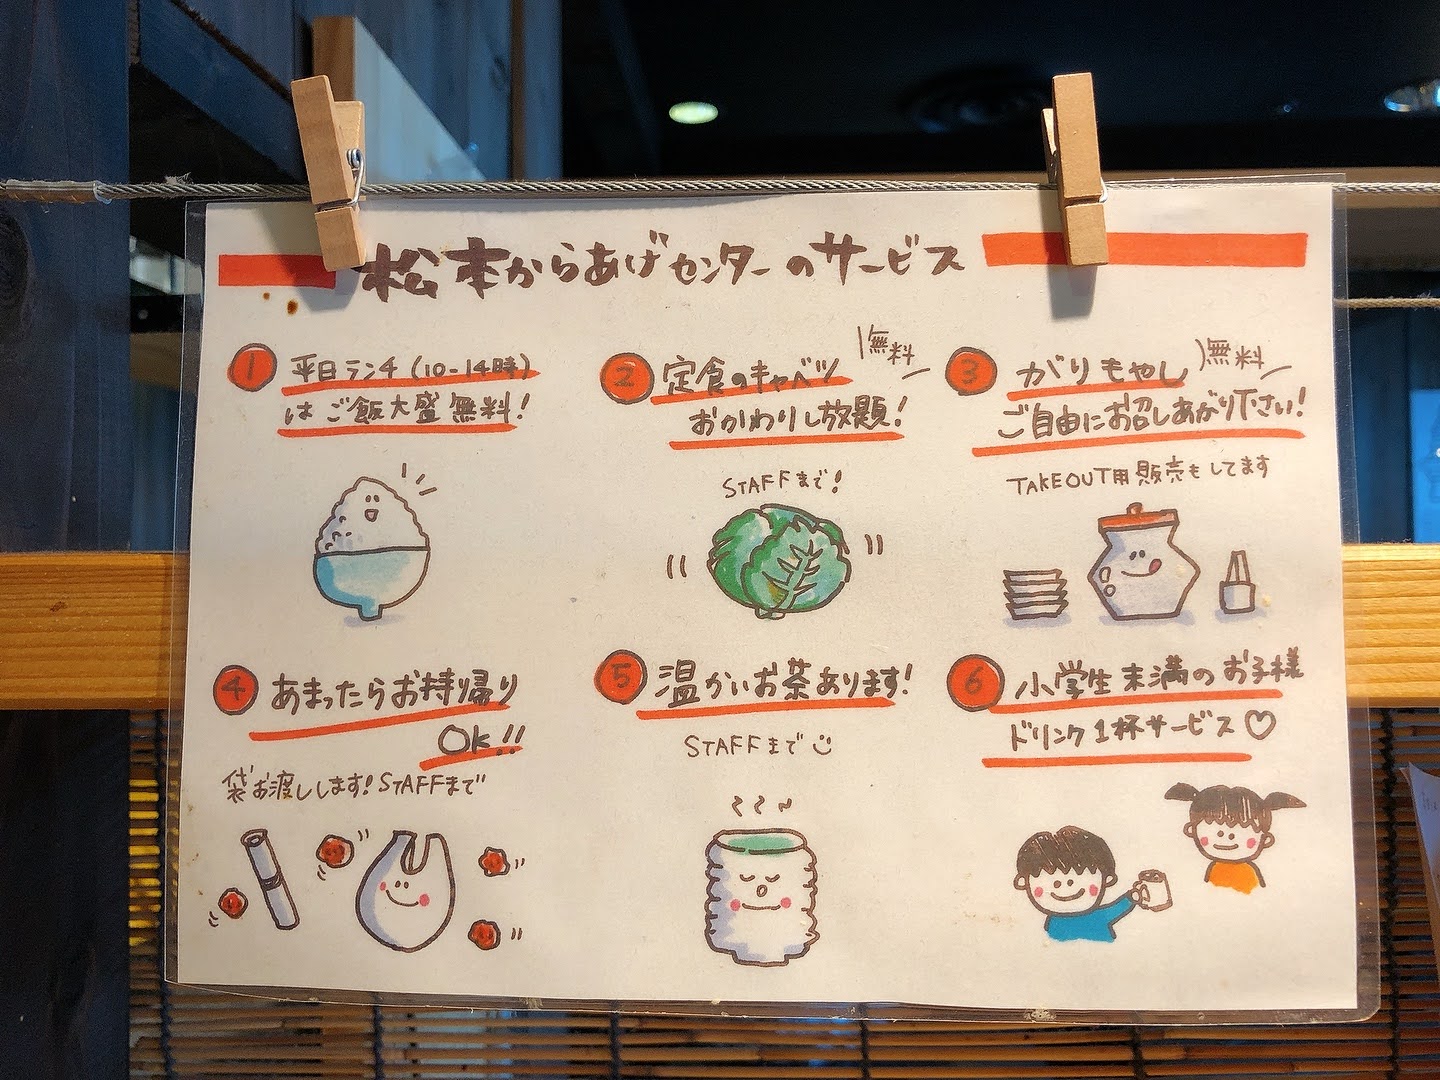 松本からあげセンターのサービス
1 平日ランチ(10-14時)
はご飯大盛無料!
2 定食のキャベツ 無料
おかわりし放題!
STAFFまで!
3 がりもやし 無料
ご自由にお召しあがり下さい!
TAKEOUT用販売もしてます
4 あまったらお持帰り
OK!!
袋お渡しします!STAFFまで
5 温かいお茶あります!
STAFFまで
6 小学生未満のお子様
ドリンク1杯サービス♡